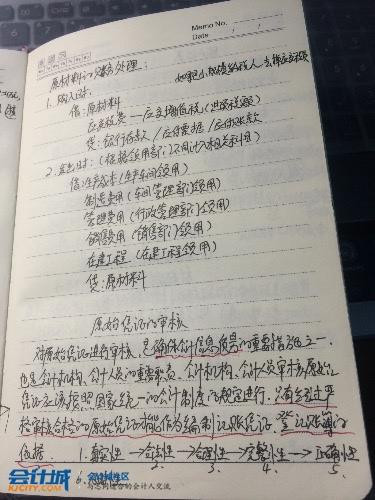 Memo No.
Date / /
原材料的账务处理：
如果是小规模纳税人，去掉应交税
1. 购入时：
借：原材料
应交税费—应交增值税（进项税额）
贷：银行存款／应付票据／应付账款
2. 发出时：（根据领用部门不同计入相关科目）
借：生产成本（生产车间领用）
制造费用（车间管理部门领用）
管理费用（行政管理部门领用）
销售费用（销售部门领用）
在建工程（在建工程领用）
贷：原材料
原始凭证的审核
对原始凭证进行审核，是确保会计信息质量的重要措施之一，
也是会计机构、会计人员的重要职责，会计机构、会计人员审核原始凭
证应该按照国家统一的会计制度的规定进行，只有经过严
格审核合格的原始凭证才能作为编制记账凭证、登记账簿的
依据。1. 真实性→合法性→合理性→完整性→正确性
2. 3. 4. 5.
6.
会计城
KJCITY.COM
会计城社区